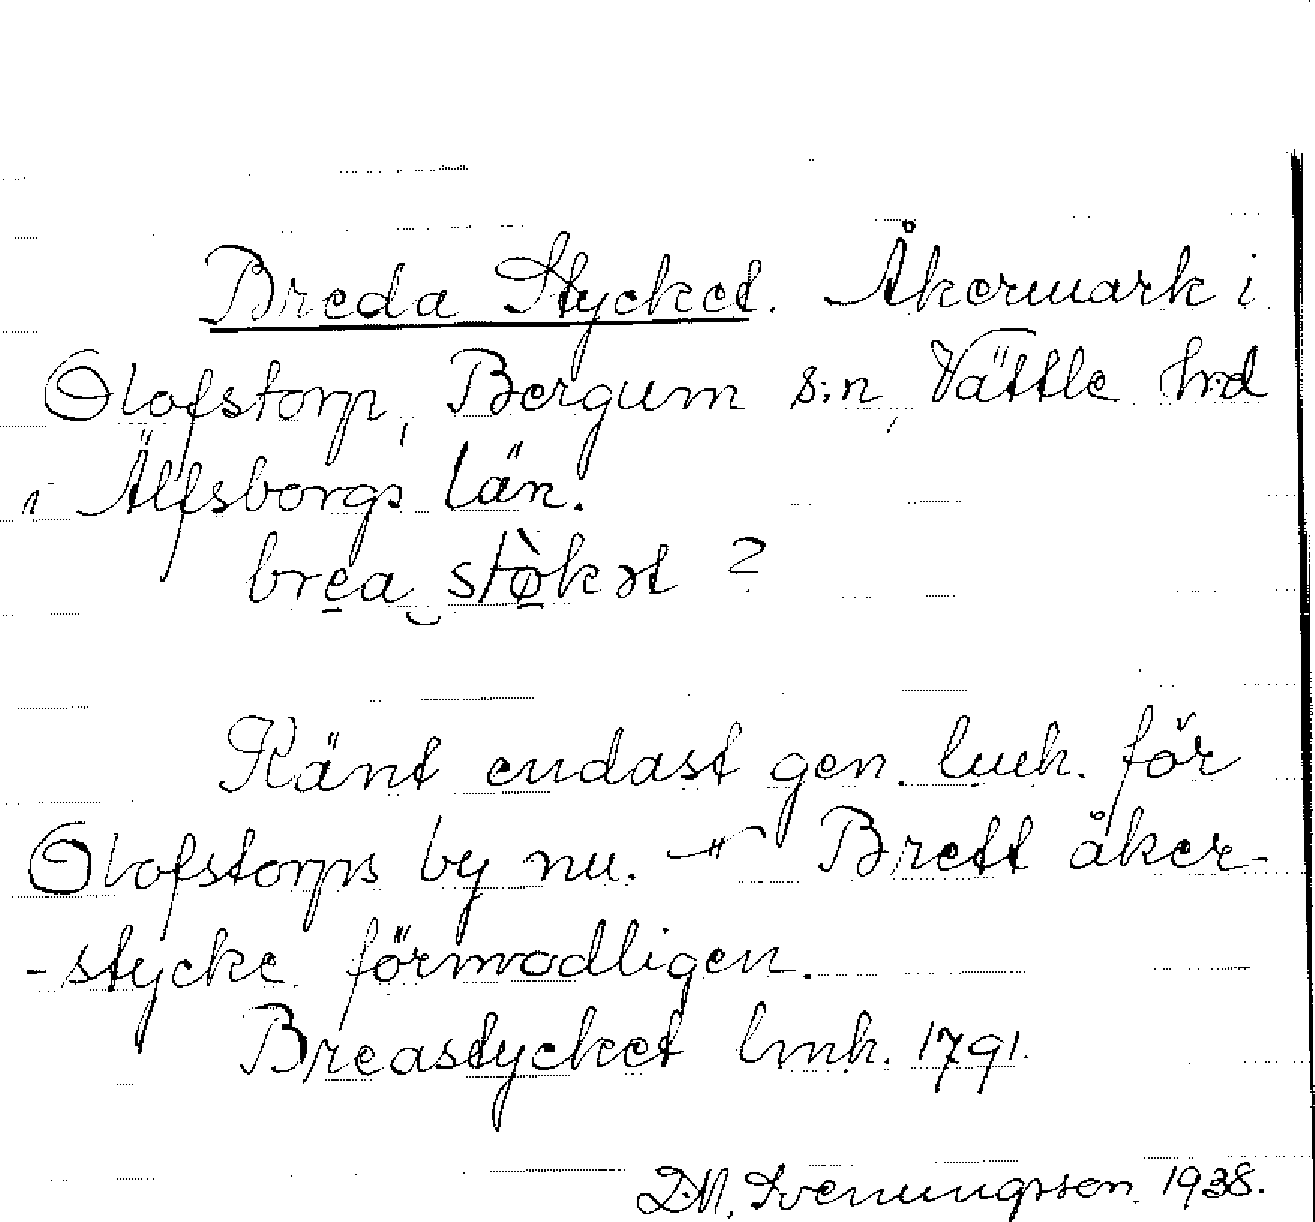 Breda Stycket. Åkermark i
Olofstorp, Bergum s:n, Vättle hrd
i Älfsborgs län.
brea stò̤kət ?
Känt endast gen. lmk. för
Olofstorps by nu. — Brett åker-
-stycke förmodligen.
Breastycket lmk. 1791.
D.M. Svenungsson 1938.